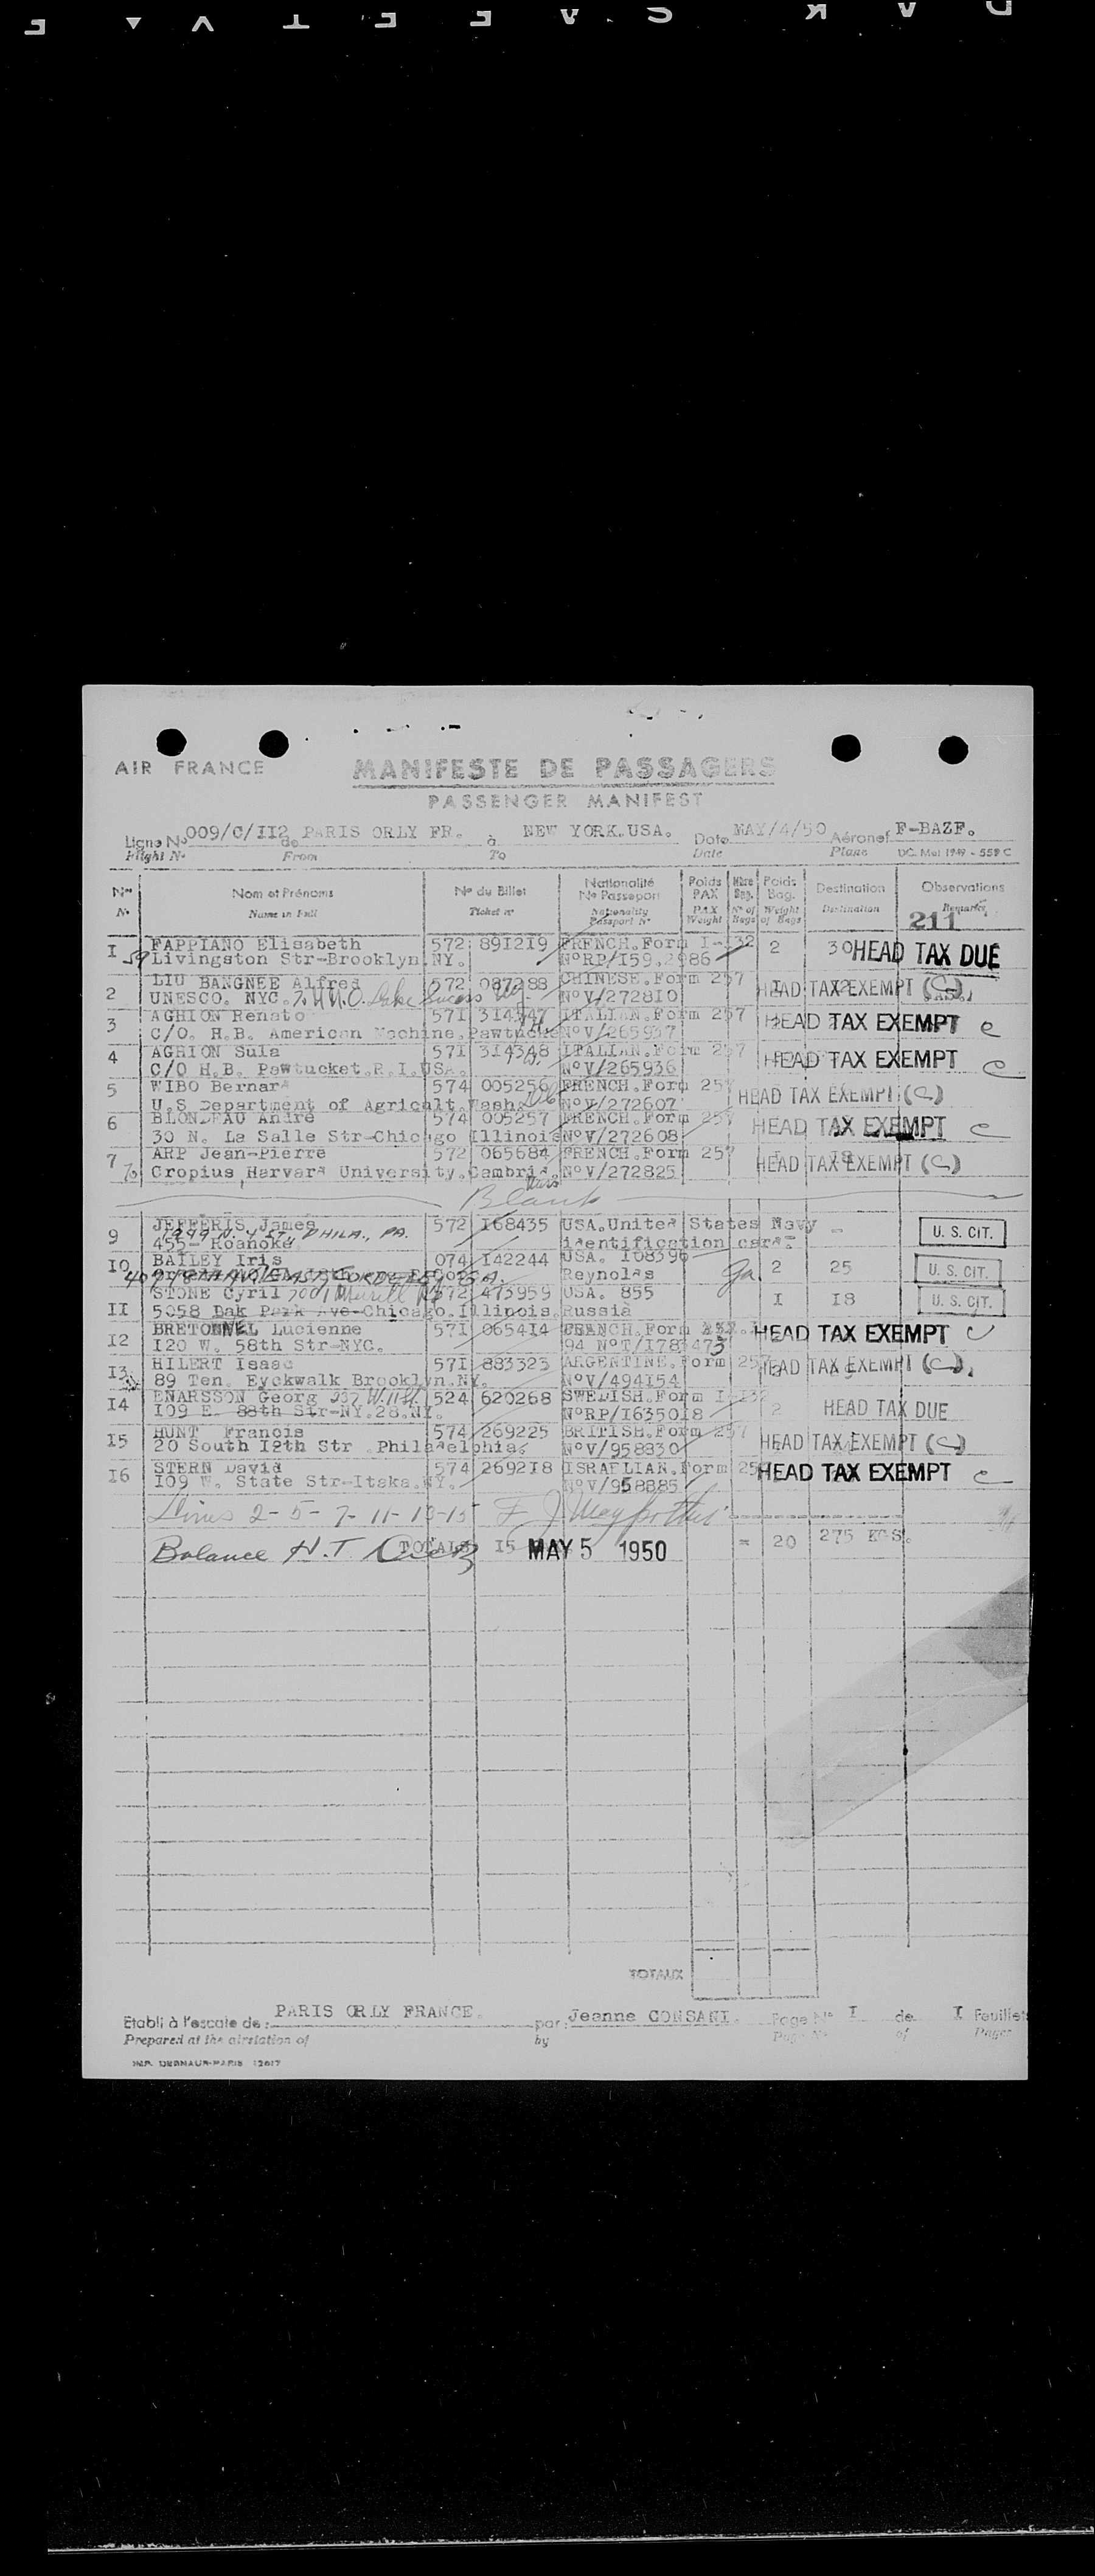 AIR FRANCE
MANIFESTE DE PASSAGERS
PASSENGER MANIFEST
Ligne No 009/C/II2 de PARIS ORLY FR. à NEW YORK.USA. Date MAY/4/50 Aéronef F-BAZF.
Flight No From To Date Plane UC. Mol 1949 - 559 C
Nos Nom et Prénoms No du Billet Nationalité No Passeport Poids PAX Nbre Bag. Poids Bag. Destination Observations
N. Name in Full Ticket no Nationality Passport No PAX Weight No of Bags Weight of Bags Destination Remarks
211
I FAPPIANO Elisabeth 572 891219 FRENCH.Form I-132 2 30 HEAD TAX DUE
59 Livingston Str-Brooklyn.NY. NoRP/I59.2986
2 LIU BANGNEE Alfred 572 087288 CHINESE.Form 257 HEAD TAX EXEMPT (C)
UNESCO. NYC. NoV/272810
3 AGHION Renato 571 314347 ITALIAN.Form 257 HEAD TAX EXEMPT C
C/O. H.B. American Machine.Pawtucke NoV/265937
4 AGHION Sula 571 314348 ITALIAN.Form 257 HEAD TAX EXEMPT C
C/O H.B. Pawtucket.R.I.USA. NoV/265936
5 WIBO Bernard 574 005256 FRENCH.Form 257 HEAD TAX EXEMPT (C)
U.S Department of Agricult.Wash. NoV/272607
6 BLONDEAU André 574 005257 FRENCH.Form 257 HEAD TAX EXEMPT C
30 N. La Salle Str-Chicago Illinois NoV/272608
7 ARP Jean-Pierre 572 065684 FRENCH.Form 257 HEAD TAX EXEMPT (C)
Cropius,Harvard University.Cambrid. NoV/272825
Blank
9 JEFFERIS James 572 168435 USA.United States Navy - U. S. CIT.
455- Roanoke identification card.
IO BAILEY Iris 074 142244 USA. 168396 2 25 U. S. CIT.
Reynolds Ga
II STONE Cyril 572 473959 USA. 855 I I8 U. S. CIT.
5058 Oak Park Ave-Chicago.Illinois. Russia
I2 BRETONNEL Lucienne 571 065414 FRENCH.Form HEAD TAX EXEMPT C
I20 W. 58th Str-NYC.
I3 HILERT Isaac 571 883323 ARGENTINE.Form 257 HEAD TAX EXEMPT (C)
89 Ten. Eyckwalk Brooklyn.NY. NoV/494154
I4 ENARSSON Georg 524 620268 SWEDISH.Form I-132 2 HEAD TAX DUE
I09 E. 88th Str-NY.28.NY. NoRP/I635018
I5 HUNT Francis 574 269225 BRITISH.Form 257 HEAD TAX EXEMPT (C)
20 South I2th Str .Philadelphia. NoV/958830
I6 STERN David 574 269218 ISRAELIAN.Form 257 HEAD TAX EXEMPT C
I09 W. State Str-Itaka.NY. NoV/958885
2-5-7-11-13-15
Balance H.T TOTALS I5 MAY 5 1950 = 20 275 KGS.
TOTAUX
Etabli à l'escale de : PARIS ORLY FRANCE. par : Jeanne CONSANI. Page No I de I Feuillets
Prepared at the airstation of by Page No of Pages
IMP. DERNAUR-PARIS 12617